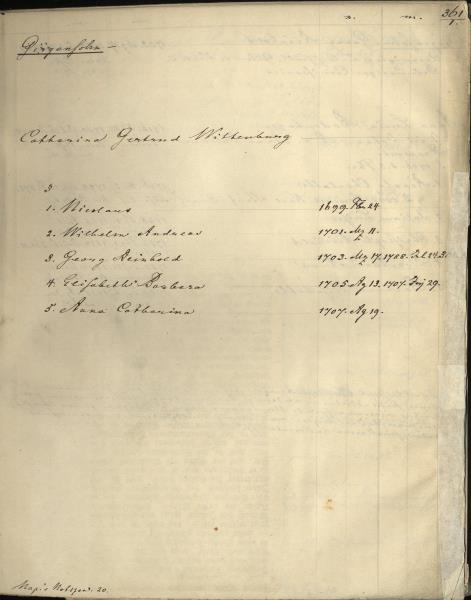 n. m. 361
1.
Girgensohn —
Catharina Gertrud Wittenburg
5
1. Nicolaus 1699. 24
2. Wilhelm Andreas 1701. Mz 11.
3. Georg Reinhold 1703. Mz 17. 1788. Jul 24.
4. Elisabeth Barbara 1705. Ag 13. 1707. 29.
5. Anna Catharina 1707. Ag 19.
20.